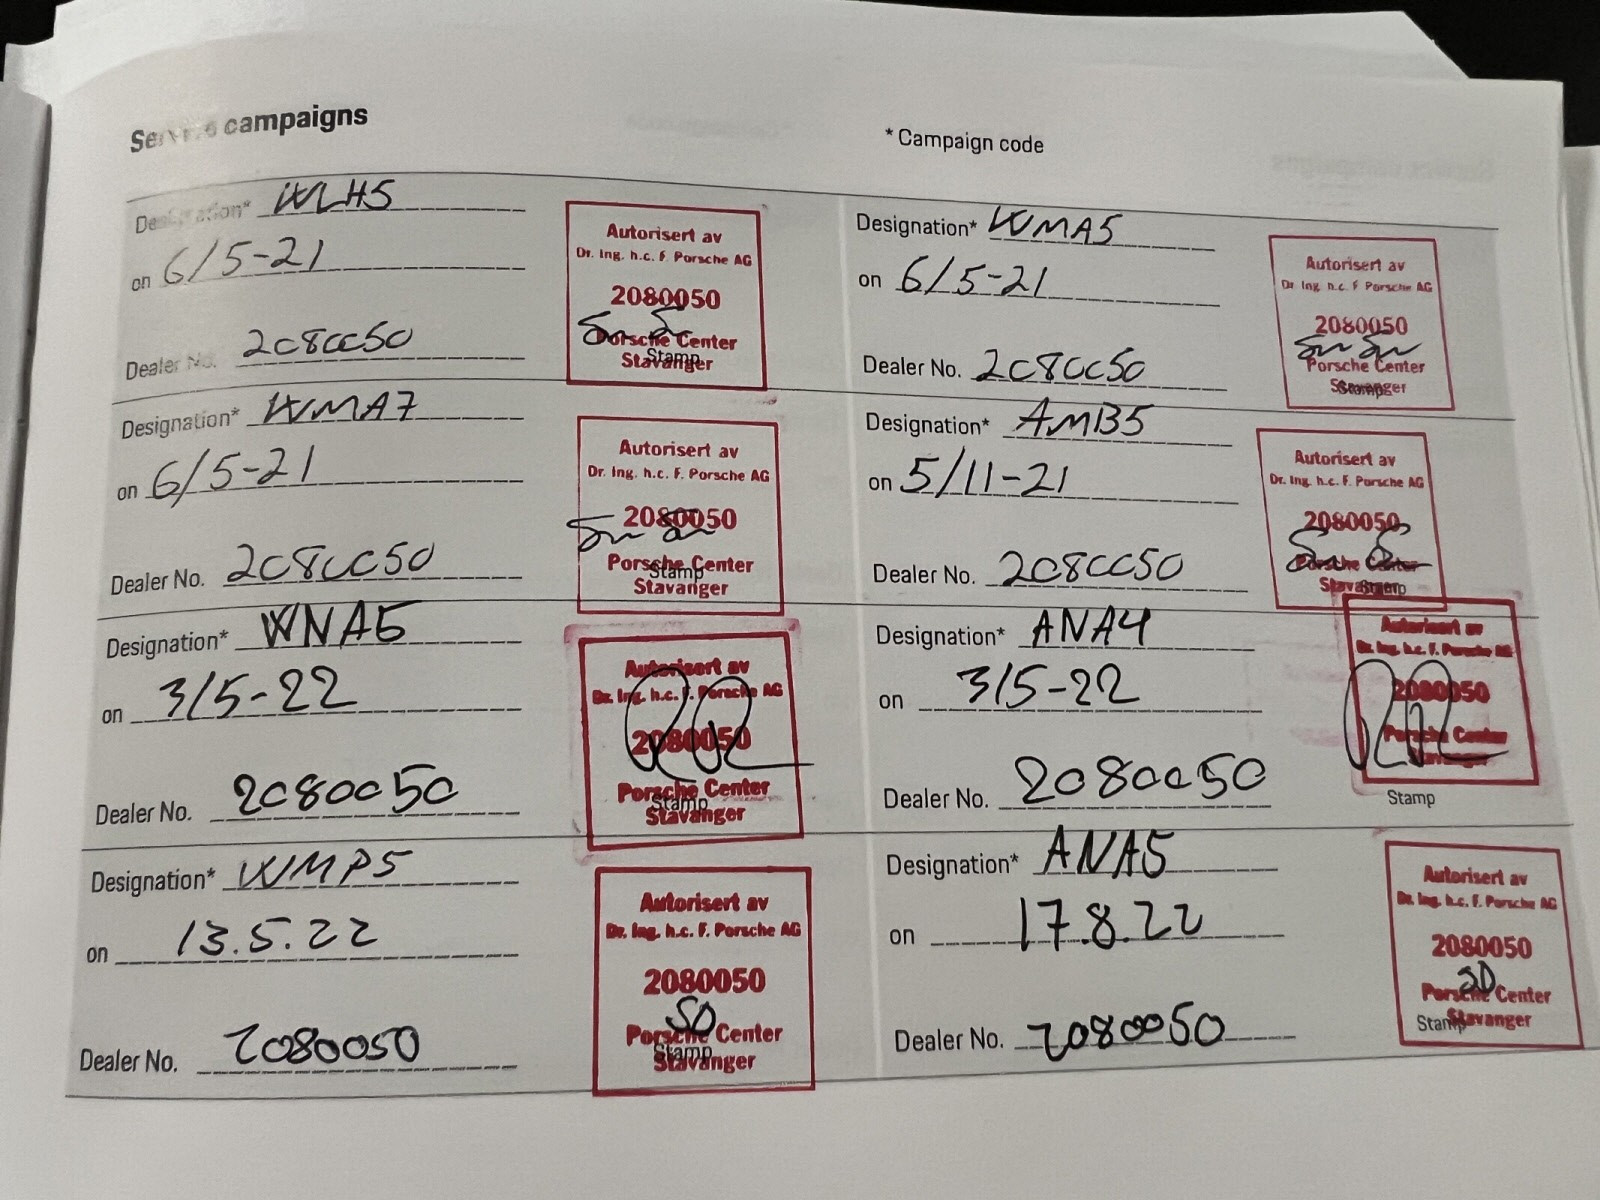 Service campaigns
* Campaign code
Designation* WLH5
on 6/5-21
Dealer No. 2080050
Autorisert av
Dr. Ing. h.c. F. Porsche AG
2080050
Porsche Center
Stamp
Stavanger
Designation* WMA5
on 6/5-21
Dealer No. 2080050
Autorisert av
Dr. Ing. h.c. F. Porsche AG
2080050
Porsche Center
Stavanger
Stamp
Designation* WMA7
on 6/5-21
Dealer No. 2080050
Autorisert av
Dr. Ing. h.c. F. Porsche AG
2080050
Porsche Center
Stamp
Stavanger
Designation* AMB5
on 5/11-21
Dealer No. 2080050
Autorisert av
Dr. Ing. h.c. F. Porsche AG
2080050
Porsche Center
Stavanger
Stamp
Designation* WNA5
on 3/5-22
Dealer No. 2080050
Autorisert av
Dr. Ing. h.c. F. Porsche AG
2080050
Porsche Center
Stamp
Stavanger
Designation* ANA4
on 3/5-22
Dealer No. 2080050
Autorisert av
Dr. Ing. h.c. F. Porsche AG
2080050
Porsche Center
Stavanger
Stamp
Designation* WMP5
on 13.5.22
Dealer No. 2080050
Autorisert av
Dr. Ing. h.c. F. Porsche AG
2080050
SD
Porsche Center
Stamp
Stavanger
Designation* ANA5
on 17.8.22
Dealer No. 2080050
Autorisert av
Dr. Ing. h.c. F. Porsche AG
2080050
SD
Porsche Center
Stamp
Stavanger